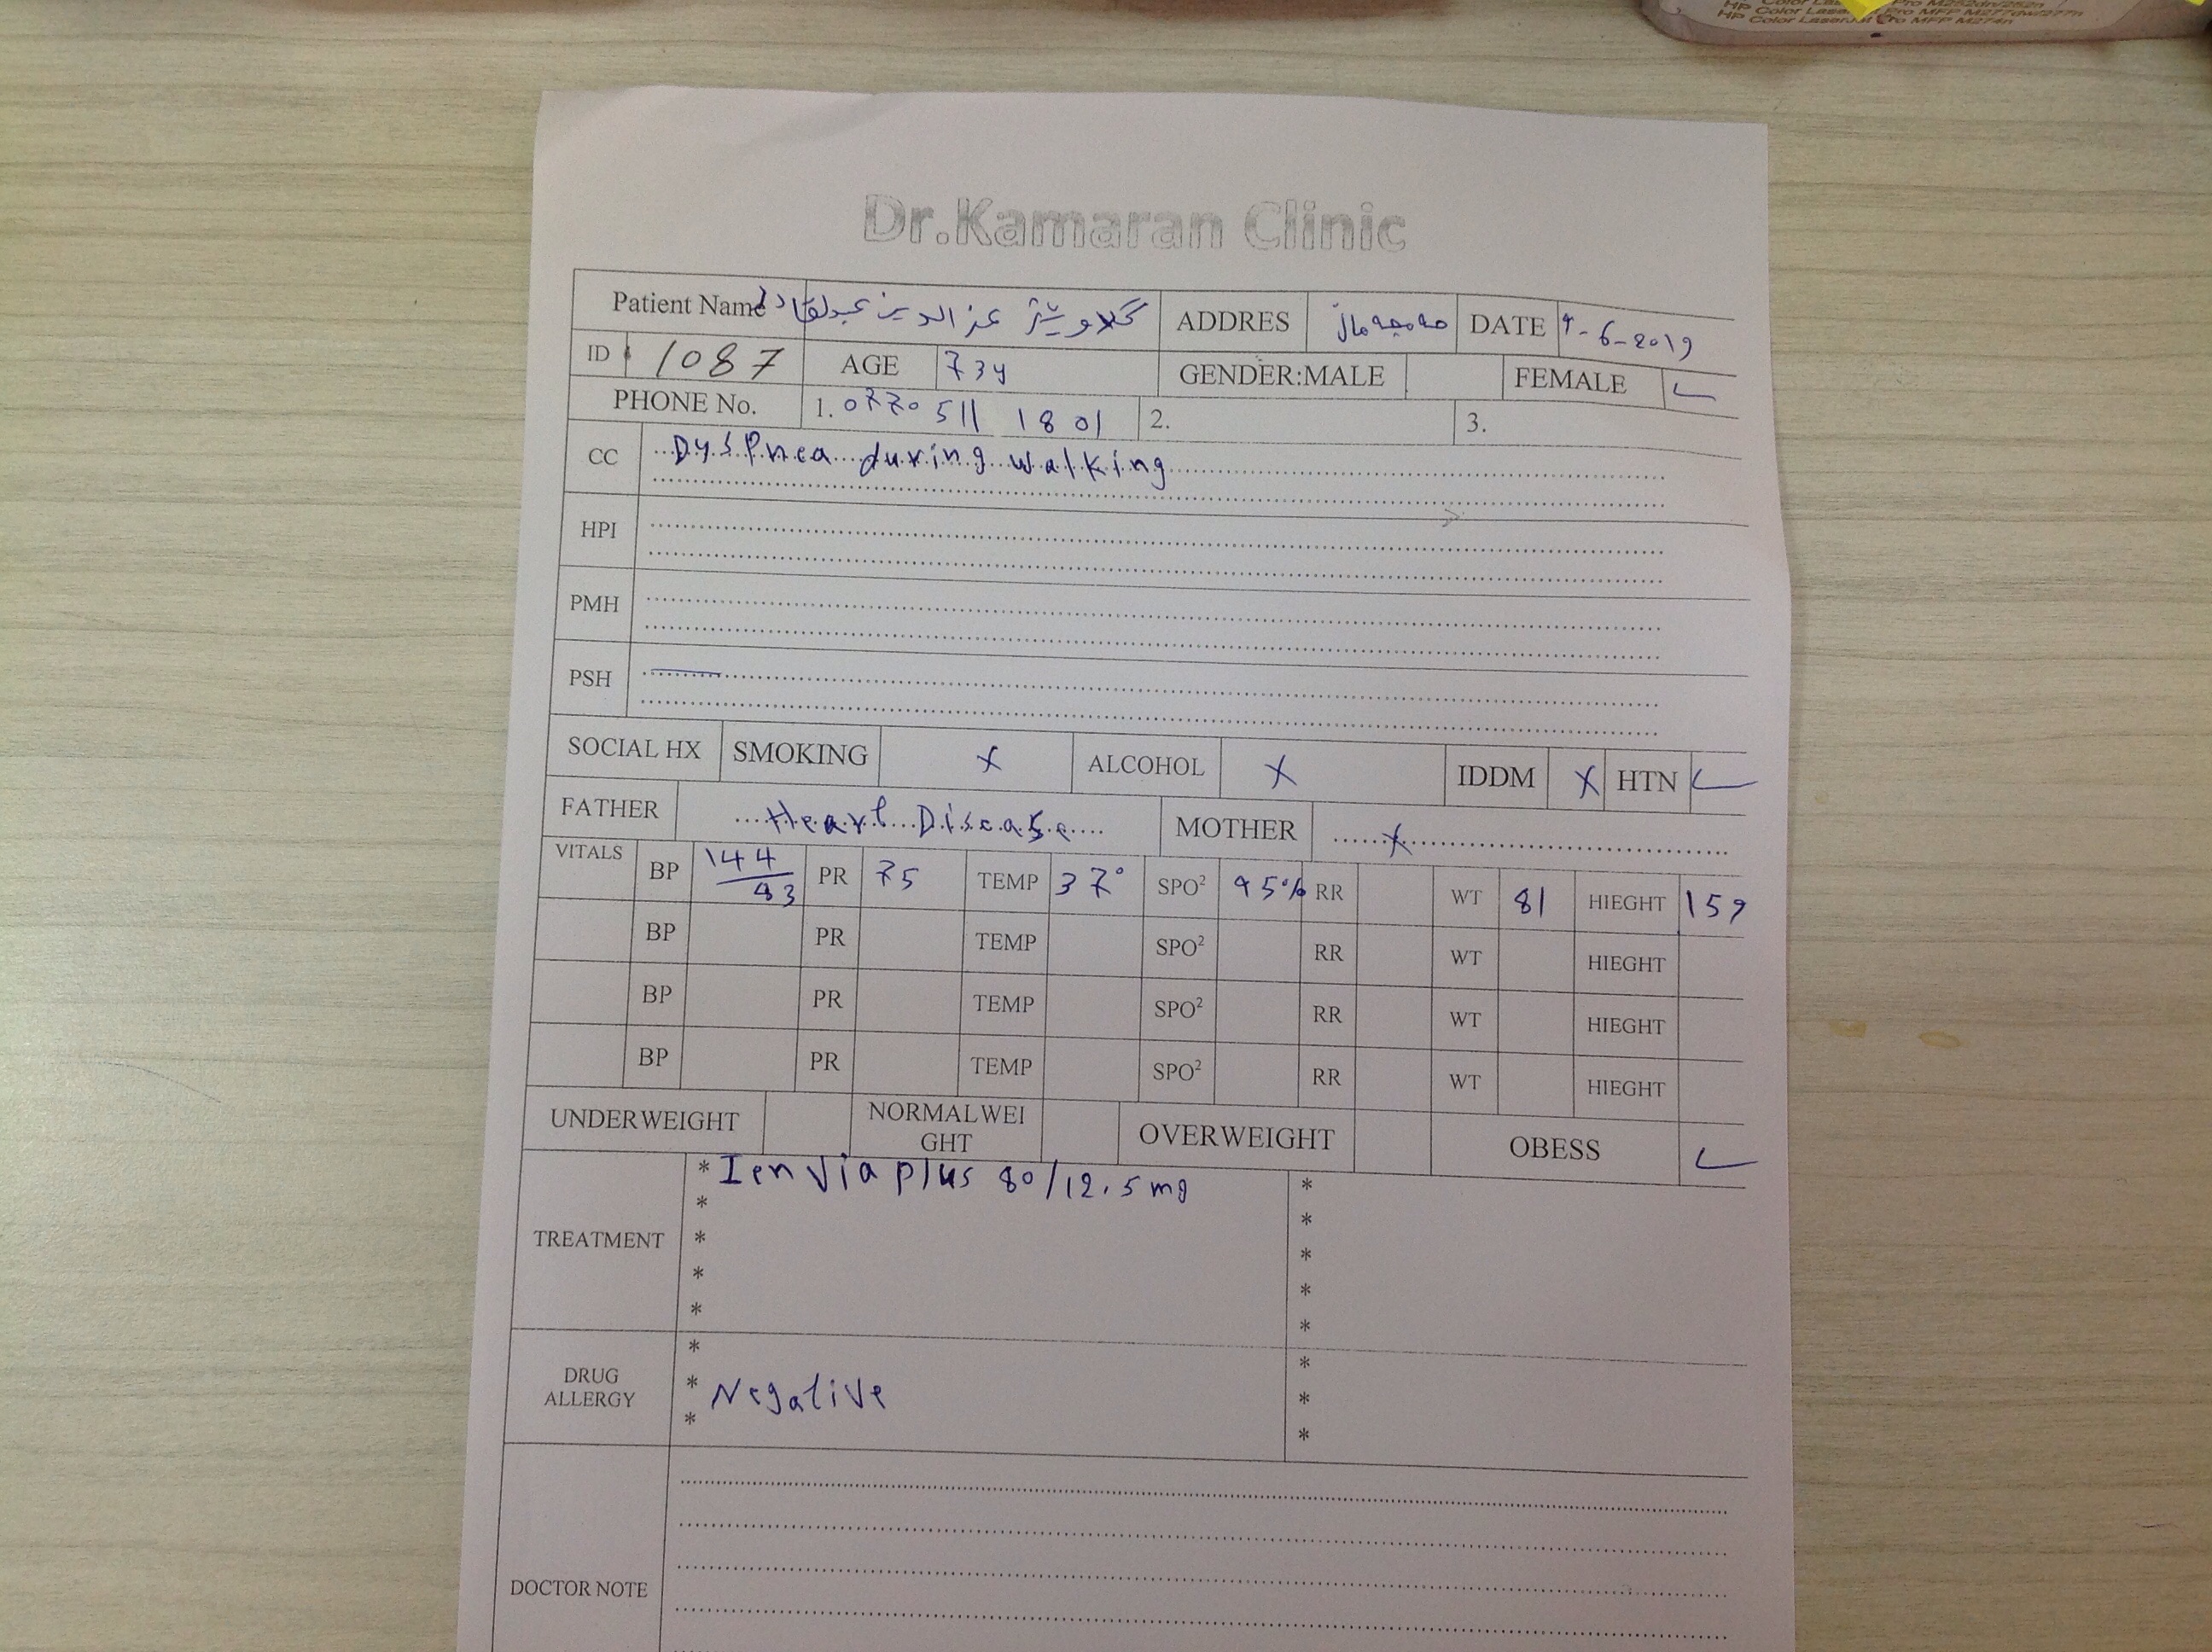 HP Color LaserJet Pro MFP M277dw/277n
HP Color LaserJet Pro MFP M274n
Dr.Kamaran Clinic
Patient Name گلاویژ عزالدین عبدلقادر ADDRES DATE 9-6-2019
ID 1087 AGE 73y GENDER:MALE FEMALE ✓
PHONE No. 1. 0770 511 1801 2. 3.
CC Dyspnea during walking
HPI
PMH
PSH
SOCIAL HX SMOKING X ALCOHOL X IDDM X HTN ✓
FATHER Heart Disease MOTHER X
VITALS BP 144/93 PR 75 TEMP 37° SPO² 95% RR WT 81 HIEGHT 159
BP PR TEMP SPO² RR WT HIEGHT
BP PR TEMP SPO² RR WT HIEGHT
BP PR TEMP SPO² RR WT HIEGHT
UNDERWEIGHT NORMALWEI
GHT OVERWEIGHT OBESS ✓
TREATMENT * plus 80/12.5mg *
* *
* *
* *
* *
DRUG
ALLERGY * *
* Negative *
* *
DOCTOR NOTE